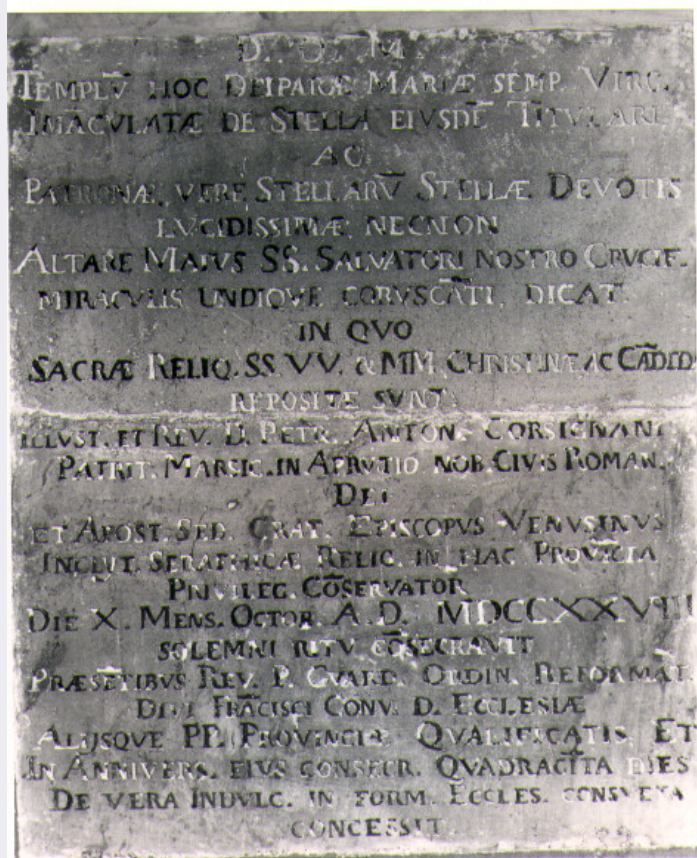 D. O. M
TEMPLV̄ HOC DEIPARÆ MARIÆ SEMP. VIRG.
IMACVLATÆ DE STELLA EIVSDĒ TITVLARI
AC
PATRONÆ, VERE, STELLARV̄ STELLÆ DEVOTIS
LVCIDISSIMÆ, NECNON
ALTARE MAIVS SS. SALVATORI NOSTRO CRVCIF.
MIRACVLIS UNDIQVE CORVSCĀTI, DICAT.
IN QVO
SACRÆ RELIQ. SS. VV. & MM. CHRISTINÆ, AC
REPOSITE SVNT.
ILLVST. ET REV. D. PETR. ANTON. CORSIGNANI
PATRIT. MARSIC. IN APRVTIO NOB. CIVIS ROMAN.
DEI
ET APOST. SED. GRAT. EPISCOPVS VENVSINVS
INCLUT. SERAPHICÆ RELIG. IN HAC PROVĪCIA
PRIVILEG. CŌSERVATOR
DIE X. MENS. OCTOR. A. D. MDCCXXVIII
SOLEMNI RITV CŌSECRAVIT
PRÆSĒTIBVS REV. P. GVARD. ORDIN. REFORMAT.
DIVI FRĀCISCI CONV. D. ECCLESIÆ
ALIJSQVE PP. PROVINCIÆ QVALIFICATIS, ET
IN ANNIVERS. EIVS CONSECR. QVADRAGĪTA DIES
DE VERA INDVLG. IN FORM. ECCLES. CONSVETA
CONCESSIT